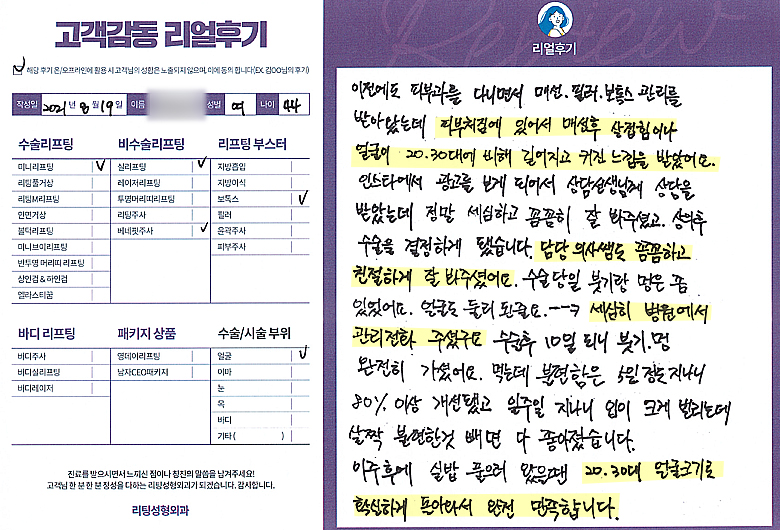 고객감동 리얼후기
해당 후기 온/오프라인에 활용 시 고객님의 성함은 노출되지 않으며, 이에 동의 합니다(EX. 김OO님의 후기)
작성일 2021년 8월 19일 이름 성별 여 나이 44
수술리프팅
미니리프팅
리팅풀거상
리팅M리프팅
안면거상
볼턱리프팅
미니브이리프팅
반투명 머리띠 리프팅
상안검 & 하안검
엘라스티꿈
비수술리프팅
실리프팅
레이저리프팅
투명머리띠리프팅
리팅주사
베네핏주사
리프팅 부스터
지방흡입
지방이식
보톡스
필러
윤곽주사
피부주사
바디 리프팅
바디주사
바디실리프팅
바디레이저
패키지 상품
영데이리프팅
남자CEO패키지
수술/시술 부위
얼굴
이마
눈
목
바디
기타 ( )
진료를 받으시면서 느끼신 점이나 칭찬의 말씀을 남겨주세요!
고객님 한 분 한 분 정성을 다하는 리팅성형외과가 되겠습니다. 감사합니다.
리팅성형외과
Review
리얼후기
이전에도 피부과를 다니면서 매선. 필러. 보톡스 관리를
받아왔는데 피부처짐에 있어서 매선후 살점힘이나
얼굴이 20. 30대에 비해 길어지고 커진 느낌을 받았어요.
인스타에서 광고를 보게 되어서 상담선생님께 상담을
받았는데 정말 세심하고 꼼꼼히 잘 봐주셨고. 상의후
수술을 결정하게 됐습니다. 담당 의사쌤도 꼼꼼하고
친절하게 잘 봐주셨어요. 수술 당일 붓기랑 멍은 좀
있었어요. 얼굴도 둔리 된줄요. ---ㅋ 세심히 병원에서
관리전화 주셨구요 수술후 10일 되니 붓기. 멍
완전히 가셨어요. 먹는데 불편함은 5일 정도 지나니
80% 이상 개선됐고 일주일 지나니 입이 크게 벌리는데
살짝 불편한것 빼면 다 좋아졌습니다.
이주후에 실밥 풀으러 왔을땐 20. 30대 얼굴크기로
확실하게 돌아와서 완전 만족합니다.